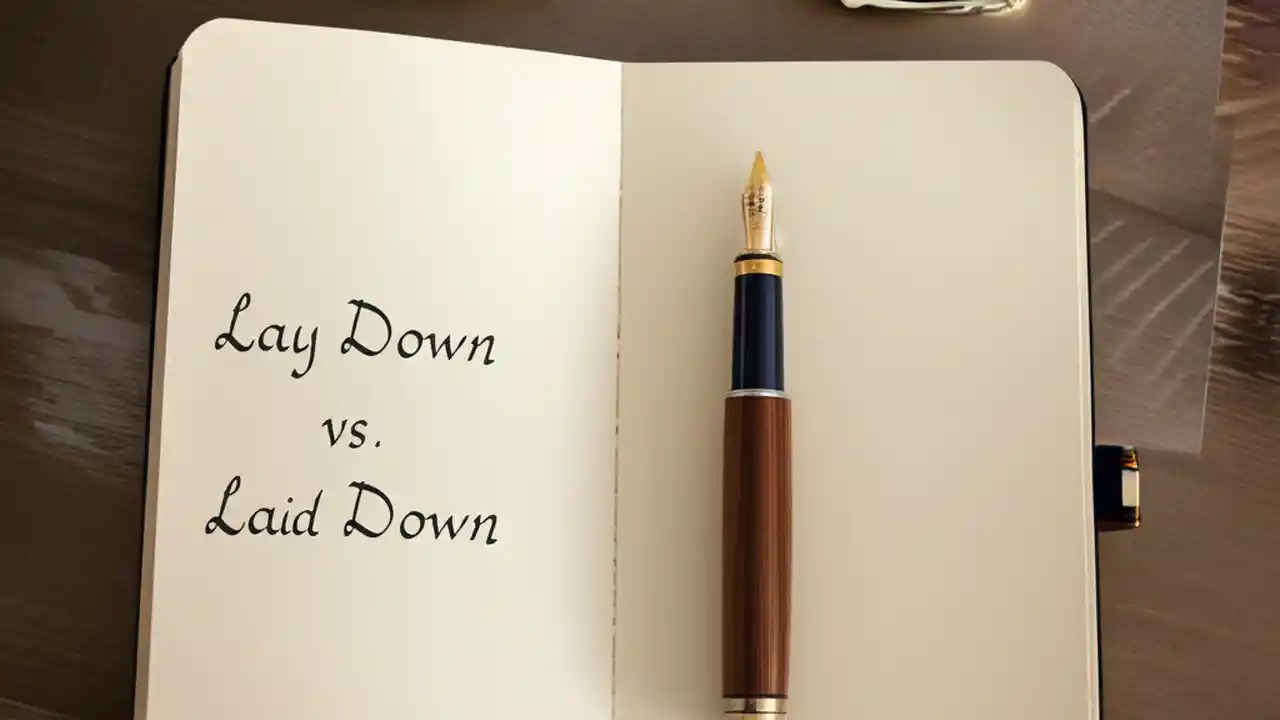 Lay Down
vs.
Laid Down